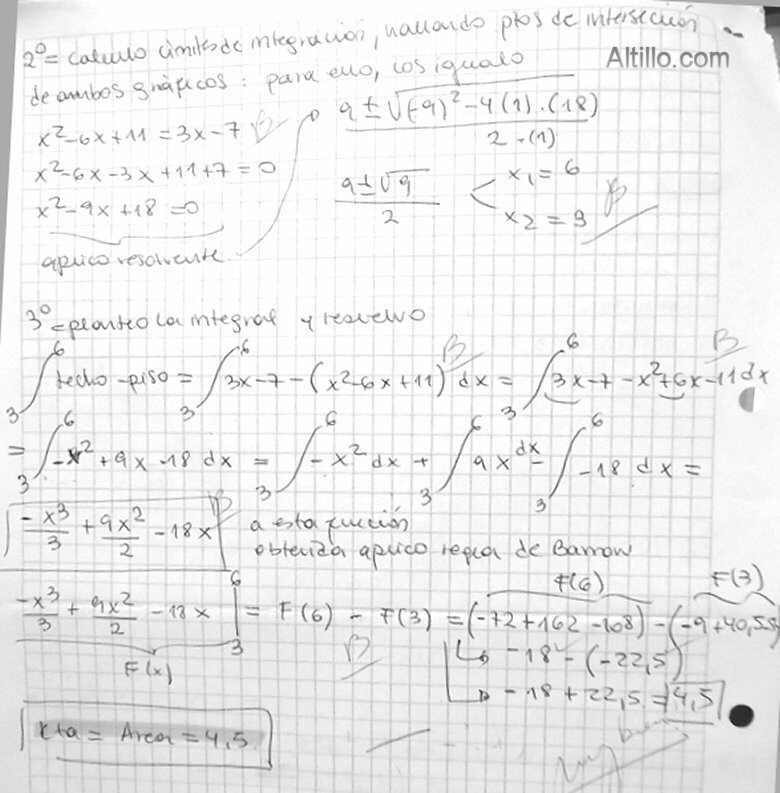 2º= calculo límites de integración, hallando ptos de intersección
Altillo.com
de ambos gráficos: para ello, los igualo
x²-6x+11 = 3x-7 B
x²-6x-3x+11+7=0
x²-9x+18=0
aplico resolvente
9±√(-9)²-4(1).(18)
2.(1)
9±√9
2
x₁=6
x₂=3
B
3º=planteo la integral y resuelvo
∫₃⁶ techo-piso = ∫₃⁶ 3x-7-(x²-6x+11) dx = ∫₃⁶ 3x-7-x²+6x-11 dx
B B
= ∫₃⁶ -x²+9x-18 dx = ∫₃⁶ -x² dx + ∫₃⁶ 9x dx - ∫₃⁶ -18 dx =
-x³/3 + 9x²/2 - 18x B
a esta función
obtenida aplico regla de Barrow
F(6) F(3)
-x³/3 + 9x²/2 - 18x |₃⁶ = F(6) - F(3) = (-72+162-108) - (-9+40,5
F(x)
B
-18-(-22,5)
-18+22,5=4,5
rta= Area=4,5